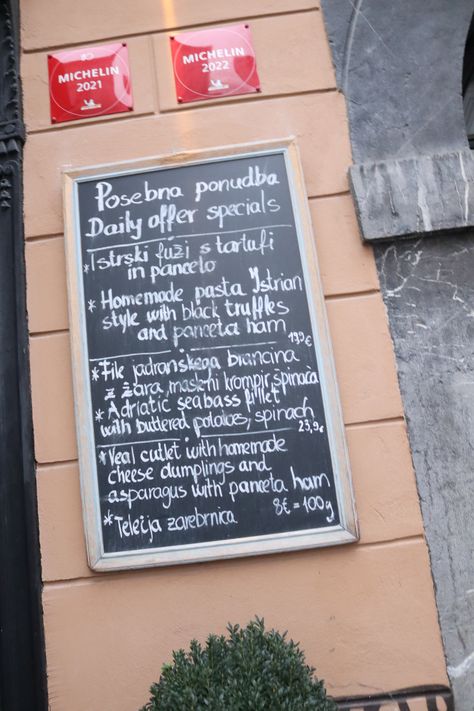 MICHELIN
2021
MICHELIN
2022
Posebna ponudba
Daily offer specials
*Istrski fuži s tartufi
in panceto
* Homemade pasta Istrian
style with black truffles
and panceta ham
*File jadranskega brancina
z žara, maslni krompir, špinača
* Adriatic seabass fillet
with buttered potatoes, spinach
23,9€
*Veal cutlet with homemade
cheese dumplings and
asparagus with panceta ham
8€ = 100g
*Telečja zarebrnica